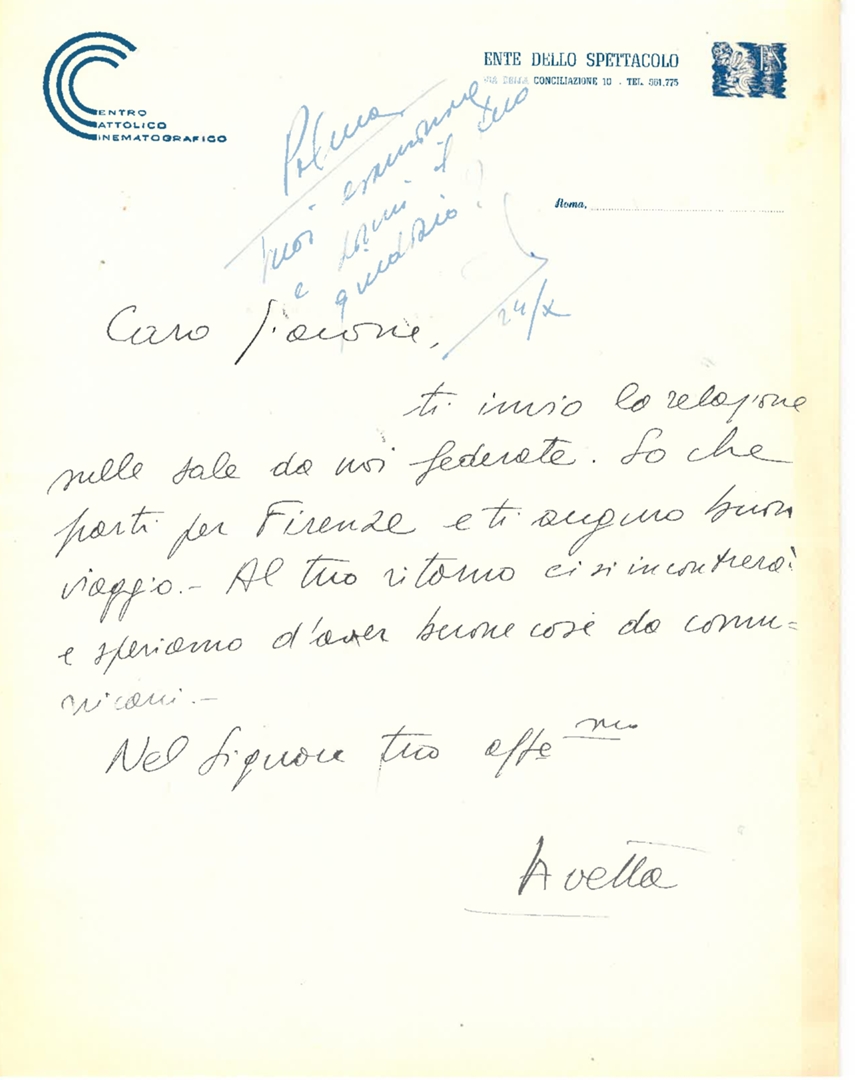 CENTRO
CATTOLICO
CINEMATOGRAFICO
ENTE DELLO SPETTACOLO
VIA DELLA CONCILIAZIONE 10 - TEL. 561.775
Roma,
vuoi esaminare
e darmi il tuo
giudizio?
24/X
Caro
ti invio la relazione
sulle sale da noi federate. So che
parti per Firenze e ti auguro buon
viaggio.- Al tuo ritorno ci si incontrerà
e speriamo d'aver buone cose da comu=
nicarci.-
Nel Signore tuo affe mo
Avetta